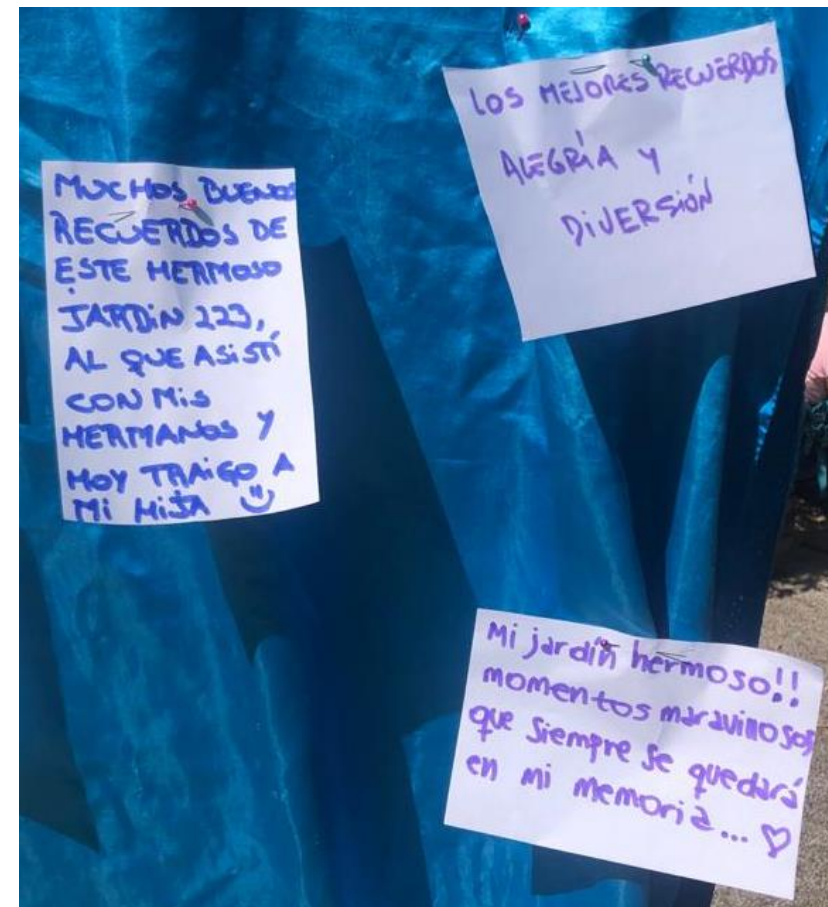 MUCHOS BUENOS
RECUERDOS DE
ESTE HERMOSO
JARDIN 223,
AL QUE ASISTÍ
CON MIS
HERMANOS Y
HOY TRAIGO A
MI HIJA
LOS MEJORES RECUERDOS
ALEGRÍA Y
DIVERSIÓN
Mi jardín hermoso!!
momentos maravillosos
que siempre se quedará
en mi memoria... ♡